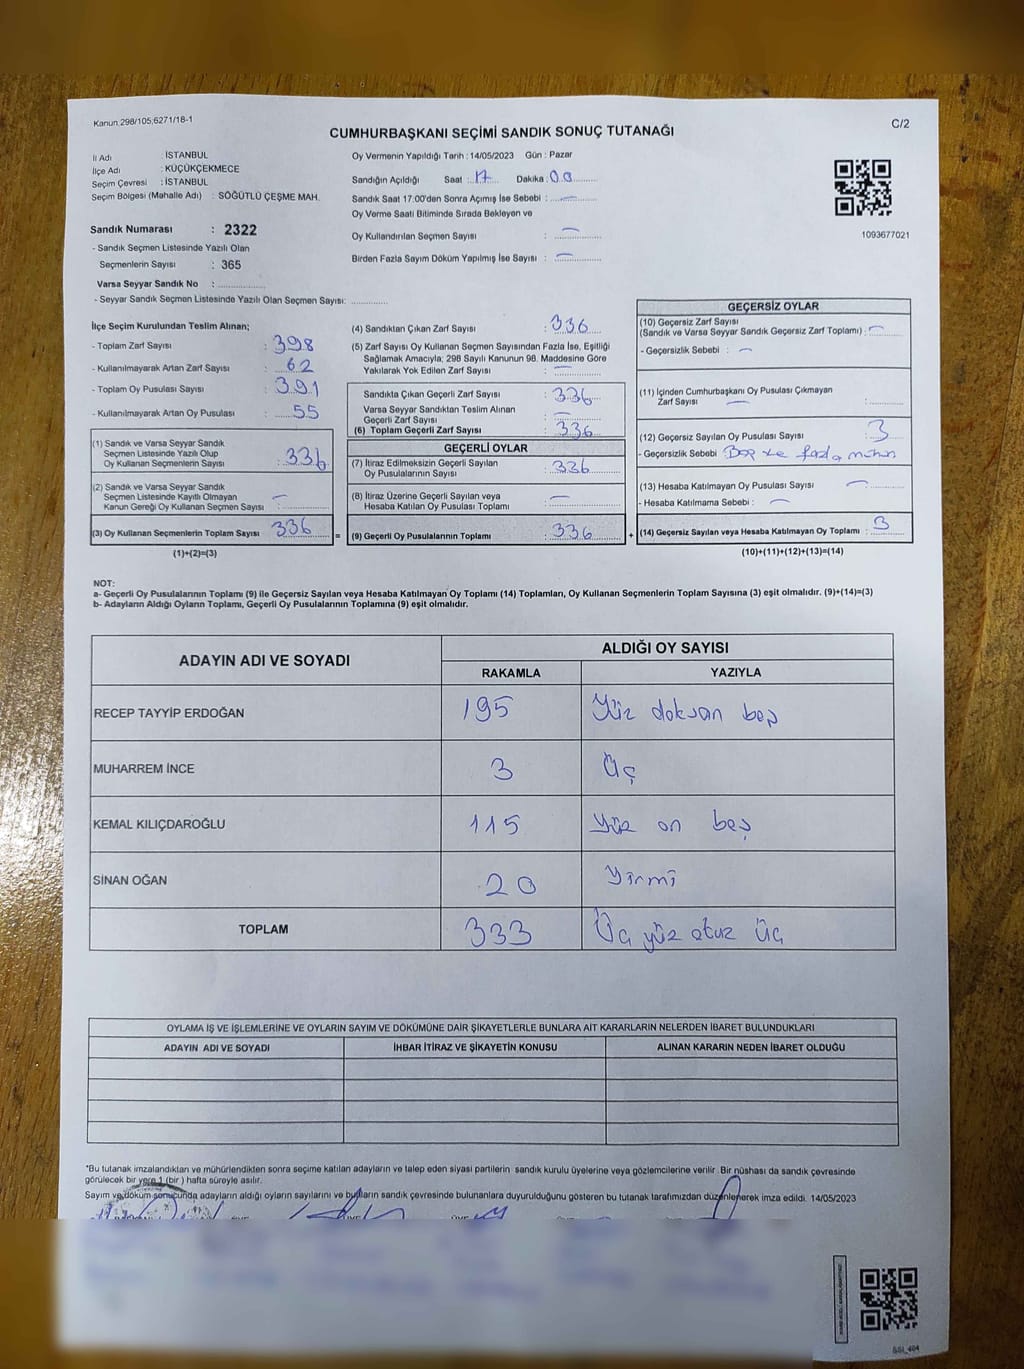 Kanun 298/105;6271/18-1
C/2
CUMHURBAŞKANI SEÇİMİ SANDIK SONUÇ TUTANAĞI
İl Adı : İSTANBUL
İlçe Adı : KÜÇÜKÇEKMECE
Seçim Çevresi : İSTANBUL
Seçim Bölgesi (Mahalle Adı) : SÖĞÜTLÜ ÇEŞME MAH.
Sandık Numarası : 2322
- Sandık Seçmen Listesinde Yazılı Olan
Seçmenlerin Sayısı : 365
Varsa Seyyar Sandık No :
- Seyyar Sandık Seçmen Listesinde Yazılı Olan Seçmen Sayısı:
Oy Vermenin Yapıldığı Tarih : 14/05/2023 Gün : Pazar
Sandığın Açıldığı Saat : 17 Dakika : 00
Sandık Saat 17.00'den Sonra Açımış İse Sebebi : —
Oy Verme Saati Bitiminde Sırada Bekleyen ve
Oy Kullandırılan Seçmen Sayısı : —
Birden Fazla Sayım Döküm Yapılmış İse Sayısı : —
1093677021
İlçe Seçim Kurulundan Teslim Alınan;
- Toplam Zarf Sayısı : 398
- Kullanılmayarak Artan Zarf Sayısı : 62
- Toplam Oy Pusulası Sayısı : 391
- Kullanılmayarak Artan Oy Pusulası : 55
(1) Sandık ve Varsa Seyyar Sandık
Seçmen Listesinde Yazılı Olup
Oy Kullanan Seçmenlerin Sayısı : 336
(2) Sandık ve Varsa Seyyar Sandık
Seçmen Listesinde Kayıtlı Olmayan
Kanun Gereği Oy Kullanan Seçmen Sayısı : —
(3) Oy Kullanan Seçmenlerin Toplam Sayısı : 336
(1)+(2)=(3)
=
(4) Sandıktan Çıkan Zarf Sayısı : 336
(5) Zarf Sayısı Oy Kullanan Seçmen Sayısından Fazla İse, Eşitliği
Sağlamak Amacıyla; 298 Sayılı Kanunun 98. Maddesine Göre
Yakılarak Yok Edilen Zarf Sayısı : —
Sandıkta Çıkan Geçerli Zarf Sayısı : 336
Varsa Seyyar Sandıktan Teslim Alınan
Geçerli Zarf Sayısı : —
(6) Toplam Geçerli Zarf Sayısı : 336
GEÇERLİ OYLAR
(7) İtiraz Edilmeksizin Geçerli Sayılan
Oy Pusulalarının Sayısı : 336
(8) İtiraz Üzerine Geçerli Sayılan veya
Hesaba Katılan Oy Pusulaları Toplamı : —
(9) Geçerli Oy Pusulalarının Toplamı : 336
+
GEÇERSİZ OYLAR
(10) Geçersiz Zarf Sayısı
(Sandık ve Varsa Seyyar Sandık Geçersiz Zarf Toplamı) : —
- Geçersizlik Sebebi : —
(11) İçinden Cumhurbaşkanı Oy Pusulası Çıkmayan
Zarf Sayısı — :
(12) Geçersiz Sayılan Oy Pusulası Sayısı : 3
- Geçersizlik Sebebi Boş ve fazla mühür
(13) Hesaba Katılmayan Oy Pusulası Sayısı : —
- Hesaba Katılmama Sebebi : —
(14) Geçersiz Sayılan veya Hesaba Katılmayan Oy Toplamı : 3
(10)+(11)+(12)+(13)=(14)
NOT:
a- Geçerli Oy Pusulalarının Toplamı (9) ile Geçersiz Sayılan veya Hesaba Katılmayan Oy Toplamı (14) Toplamları, Oy Kullanan Seçmenlerin Toplam Sayısına (3) eşit olmalıdır. (9)+(14)=(3)
b- Adayların Aldığı Oyların Toplamı, Geçerli Oy Pusulalarının Toplamına (9) eşit olmalıdır.
ADAYIN ADI VE SOYADI
ALDIĞI OY SAYISI
RAKAMLA YAZIYLA
RECEP TAYYİP ERDOĞAN 195 Yüz doksan beş
MUHARREM İNCE 3 Üç
KEMAL KILIÇDAROĞLU 115 Yüz on beş
SİNAN OĞAN 20 Yirmi
TOPLAM 333 Üç yüz otuz üç
OYLAMA İŞ VE İŞLEMLERİNE VE OYLARIN SAYIM VE DÖKÜMÜNE DAİR ŞİKAYETLERLE BUNLARA AİT KARARLARIN NELERDEN İBARET BULUNDUKLARI
ADAYIN ADI VE SOYADI İHBAR İTİRAZ VE ŞİKAYETİN KONUSU ALINAN KARARIN NEDEN İBARET OLDUĞU
*Bu tutanak imzalandıktan ve mühürlendikten sonra seçime katılan adayların ve talep eden siyasi partilerin sandık kurulu üyelerine veya gözlemcilerine verilir. Bir nüshası da sandık çevresinde
görülecek bir yere 1 (bir) hafta süreyle asılır.
Sayım ve döküm sonucunda adayların aldığı oyların sayılarını ve bunların sandık çevresinde bulunanlara duyurulduğunu gösteren bu tutanak tarafımızdan düzenlenerek imza edildi. 14/05/2023